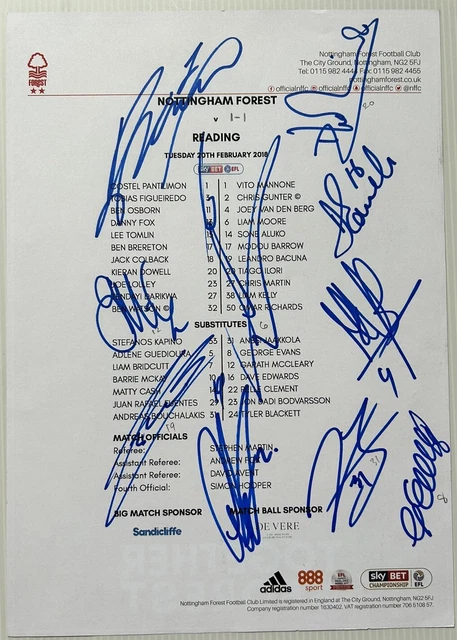 FOREST
Nottingham Forest Football Club
The City Ground, Nottingham, NG2 5FJ
Tel: 0115 982 4444 Fax: 0115 982 4455
nottinghamforest.co.uk
officialnffc officialnffc officialnffc @nffc
NOTTINGHAM FOREST
v 1-1
READING
TUESDAY 20TH FEBRUARY 2018
sky BET EFL
COSTEL PANTILIMON 1 1 VITO MANNONE
TOBIAS FIGUEIREDO 3 2 CHRIS GUNTER ©
BEN OSBORN 11 4 JOEY VAN DEN BERG
DANNY FOX 6 LIAM MOORE
LEE TOMLIN 14 SONE ALUKO
BEN BRERETON 17 MODOU BARROW
JACK COLBACK 19 LEANDRO BACUNA
KIERAN DOWELL 20 TIAGO ILORI
JOE LOLLEY 23 27 CHRIS MARTIN
TENDAYI DARIKWA 27 38 LIAM KELLY
BEN WATSON © 32 50 OMAR RICHARDS
SUBSTITUTES
STEFANOS KAPINO 31 ANSSI JAAKKOLA
ADLENE GUEDIOURA 5 8 GEORGE EVANS
LIAM BRIDCUTT 12 GARATH MCCLEARY
BARRIE MCKAY 16 DAVE EDWARDS
MATTY CASH 14 22 PELLE CLEMENT
JUAN RAFAEL FUENTES 29 23 JON DADI BODVARSSON
ANDREAS BOUCHALAKIS 31 24 TYLER BLACKETT
MATCH OFFICIALS
Referee: STEPHEN MARTIN
Assistant Referee: ANDREW FOX
Assistant Referee: DAVID AVENT
Fourth Official: SIMON HOOPER
BIG MATCH SPONSOR MATCH BALL SPONSOR
Sandicliffe DE VERE
adidas 888 sport sky BET CHAMPIONSHIP EFL
Nottingham Forest Football Club Limited is registered in England at The City Ground, Nottingham, NG2 5FJ
Company registration number 1630402. VAT registration number 706 5108 57.